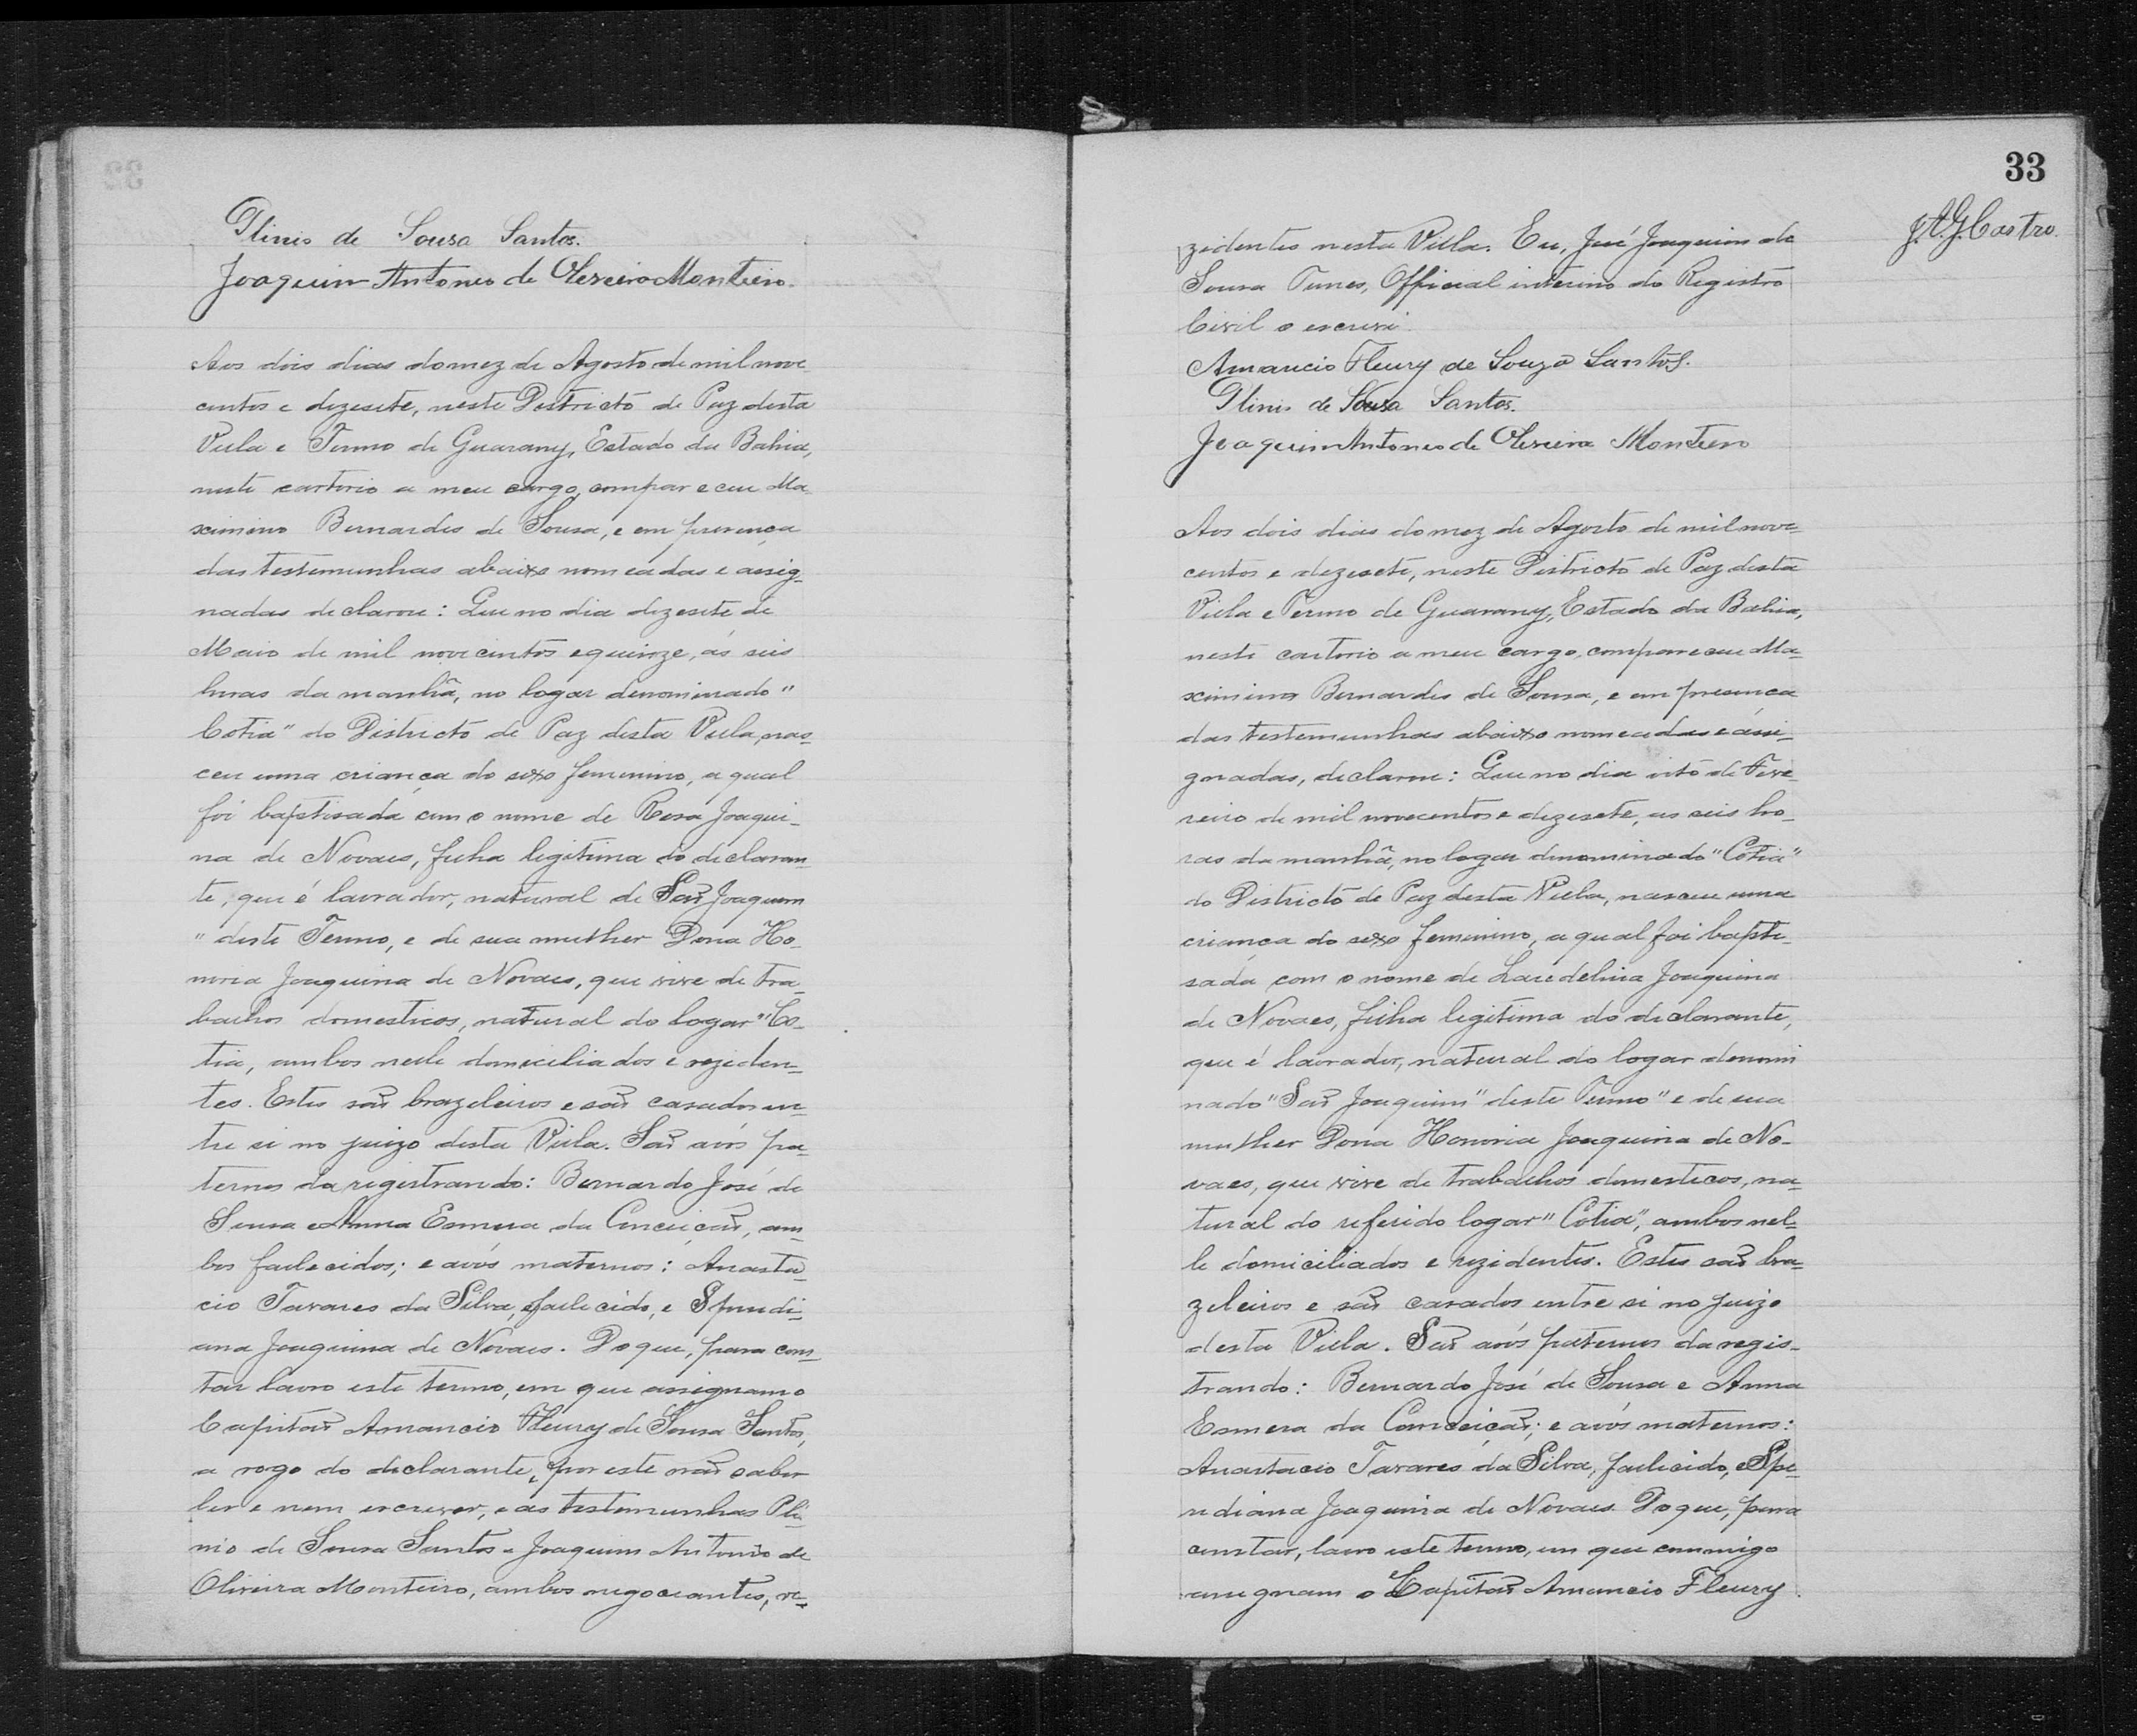 Plinio de Sousa Santos.
Joaquim Antonio de Oliveira Monteiro.
Aos dois dias do mez de Agosto de mil nove
centos e dezesete, neste Districto de Paz desta
Villa e Termo de Guarany, Estado da Bahia,
neste cartorio a meu cargo, compareceu Ma-
ximino Bernardes de Sousa, e em presença
das testemunhas abaixo nomeadas e assig-
nadas declarou: Que no dia dezesete de
Maio de mil novecentos e quinze, ás seis
horas da manhã, no logar denominado "
Cotia" do Districto de Paz desta Villa, nas-
ceu uma criança do sexo feminino, a qual
foi baptisada com o nome de Rosa Joaqui-
na de Novaes, filha legitima do declaran-
te, que é lavrador, natural de São Joaquim
" deste Termo, e de sua mulher Dona Ho-
noria Joaquina de Novaes, que vive de tra-
balhos domesticos, natural do logar "Co-
tia, ambos nelle domiciliados e reziden-
tes. Estes são brazileiros e são casados en-
tre si no juizo desta Villa. São avós pa-
ternos da registrando: Bernardo José de
Sousa e Anna Esmera da Conceição, am-
bos fallecidos; e avós maternos: Anasta-
cio Tavares da Silva, fallecido, e
Joaquina de Novaes. Do que, para cons-
tar lavro este termo, em que assignam o
Capitão Amancio Fleury de Sousa Santos,
a rogo do declarante, por este não saber
ler e nem escrever, e as testemunhas Pli-
nio de Sousa Santos e Joaquim Antonio de
Oliveira Monteiro, ambos negociantes, re-
33
J.A.G.Castro.
zidentes nesta Villa. Eu, José Joaquim de
Sousa Tunes, Official interino do Registro
Civil o escrevi.
Amancio Fleury de Souza Santos.
Plinio de Sousa Santos.
Joaquim Antonio de Oliveira Monteiro
Aos dois dias do mez de Agosto de mil nove-
centos e dezesete, neste Districto de Paz desta
Villa e Termo de Guarany, Estado da Bahia,
neste cartorio a meu cargo, compareceu Ma-
ximino Bernardes de Sousa, e em presença
das testemunhas abaixo nomeadas e assi-
gnadas, declarou: Que no dia oito de Feve-
reiro de mil novecentos e dezesete, as seis ho-
ras da manhã, no logar denominado "Cotia"
do Districto de Paz desta Villa, nasceu uma
criança do sexo feminino, a qual foi bapti-
sada com o nome de Laudelina Joaquina
de Novaes, filha legitima do declarante,
que é lavrador, natural do logar denomi
nado "São Joaquim" deste Termo" e de sua
mulher Dona Honoria Joaquina de No-
vaes, que vive de trabalhos domesticos, na-
tural do referido logar "Cotia", ambos nel-
le domiciliados e rezidentes. Estes são bra-
zileiros e são casados entre si no juizo
desta Villa. São avós paternos da regis-
trando: Bernardo José de Sousa e Anna
Esmera da Conceição; e avós maternos:
Anastacio Tavares da Silva, fallecido, e Spe-
ridiana Joaquina de Novaes. Do que, para
constar, lavro este termo, em que commigo
assignam o Capitão Amancio Fleury